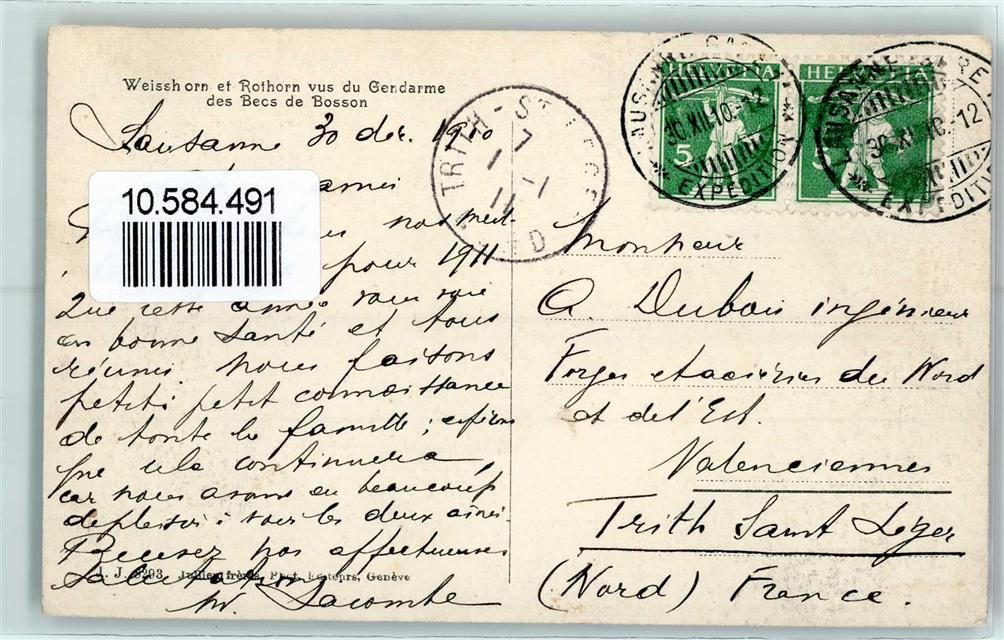 Weisshorn et Rothorn vus du Gendarme
des Becs de Bosson
Lausanne 30 déc. 1910
amis
10.584.491
nos meil
pour 1911
Que cette année vous voie
en bonne Santé et tous
réunis nous faisons
petit petit connaissance
de toute la famille ; espérons
que cela continuera
car nous avons eu beaucoup
de plaisir à voir les deux aînés.
Recevez nos affectueuses
Salutations
J. J. 8293 Jullien frères, Phot. Editeurs, Genève
Lacombe
TRITH-ST-LEGER
7
1-1
11
NORD
HELVETIA
5
LAUSANNE GARE
30.XII.10.-12
EXPEDITION
HELVETIA
5
LAUSANNE GARE
30.XII.10.-12
EXPEDITION
Monsieur
A. Dubois ingénieur
Forges et aciéries du Nord
et de l'Est.
Valenciennes
Trith Saint Léger
(Nord) France.